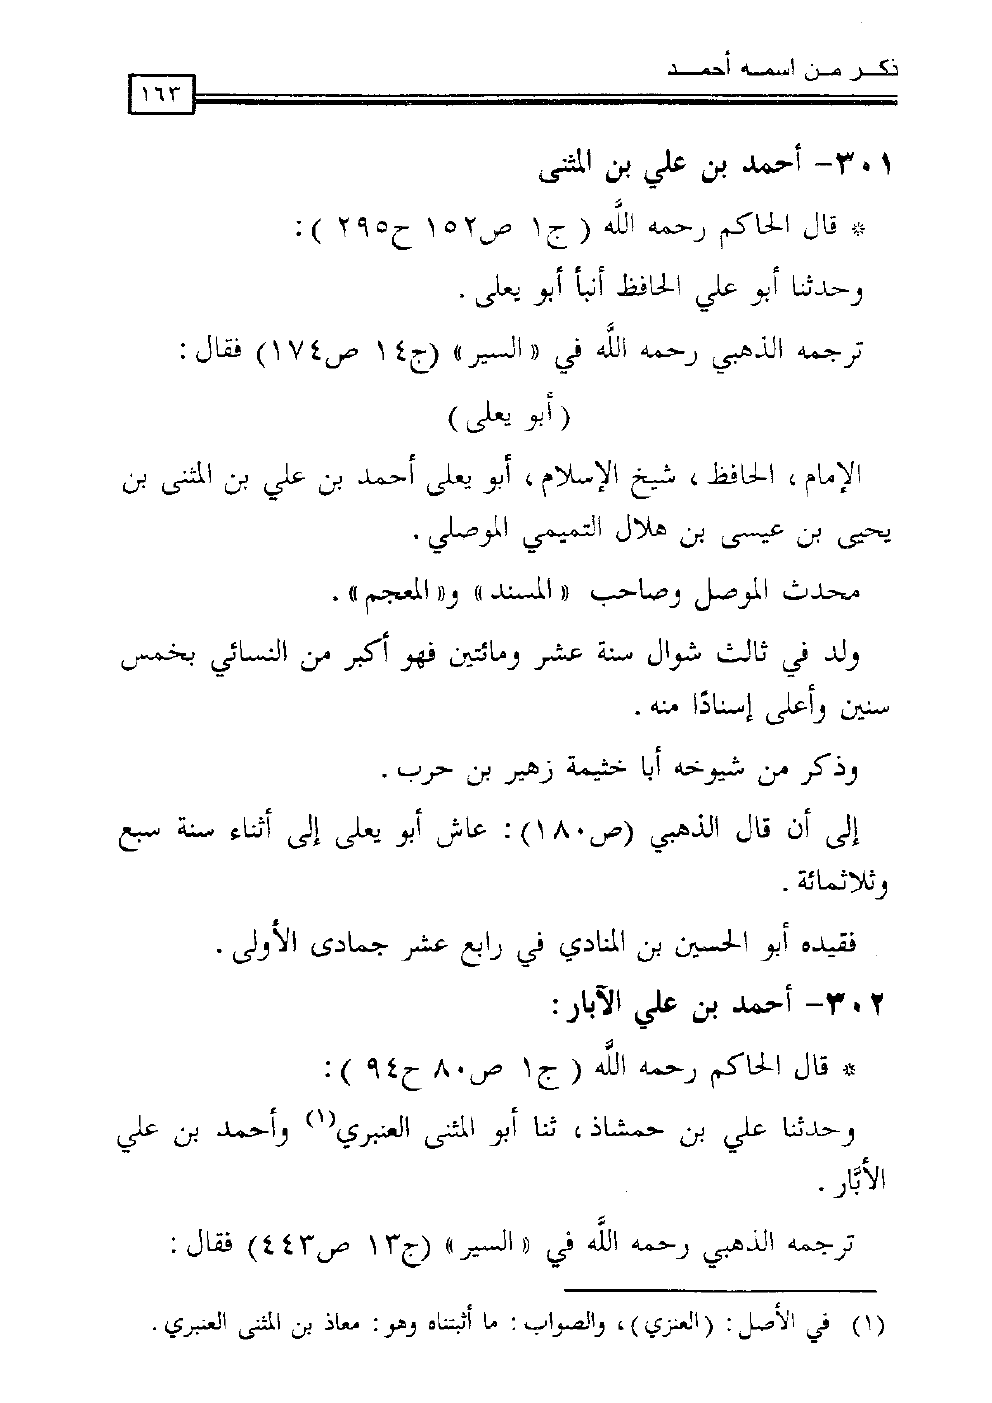 ذكر من اسمه أحمد
١٦٣
٣٠١- أحمد بن علي بن المثنى
* قال الحاكم رحمه اللَّه ( ج١ ص١٥٢ ح٢٩٥ ):
وحدثنا أبو علي الحافظ أنبأ أبو يعلى .
ترجمه الذهبي رحمه اللَّه في « السير» (ج١٤ ص١٧٤) فقال :
( أبو يعلى )
الإمام ، الحافظ ، شيخ الإسلام ، أبو يعلى أحمد بن علي بن المثنى بن
يحيى بن عيسى بن هلال التميمي الموصلي .
محدث الموصل وصاحب « المسند» و« المعجم» .
ولد في ثالث شوال سنة عشر ومائتين فهو أكبر من النسائي بخمس
سنين وأعلى إسنادًا منه .
وذكر من شيوخه أبا خثيمة زهير بن حرب .
إلى أن قال الذهبي (ص١٨٠) : عاش أبو يعلى إلى أثناء سنة سبع
وثلاثمائة .
فقيده أبو الحسين بن المنادي في رابع عشر جمادى الأولى .
٣٠٢- أحمد بن علي الآبار :
* قال الحاكم رحمه اللَّه ( ج١ ص٨٠ ح٩٤ ):
وحدثنا علي بن حمشاذ ، ثنا أبو المثنى العنبري(١) وأحمد بن علي
الأبَّار .
ترجمه الذهبي رحمه اللَّه في « السير» (ج١٣ ص٤٤٣) فقال :
(١) في الأصل : (العنزي) ، والصواب : ما أثبتناه وهو : معاذ بن المثنى العنبري .